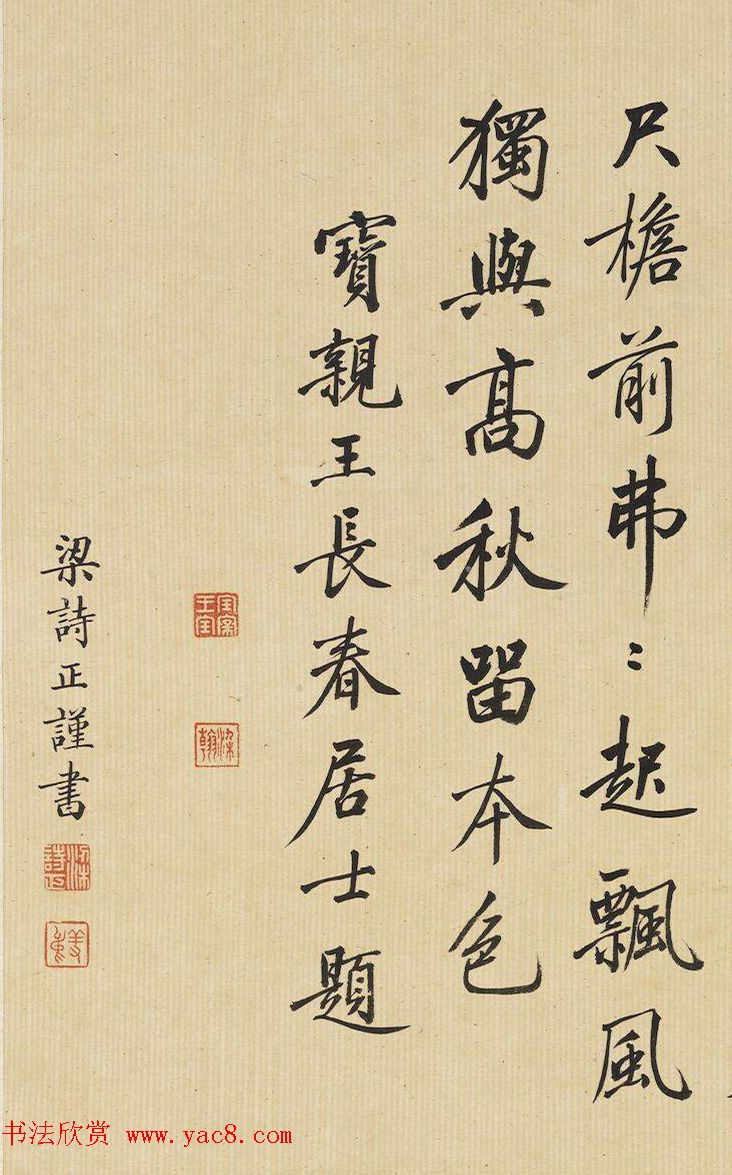 尺檐前弗〻起飄風
獨與高秋留本色
寶親王長春居士題
梁詩正謹書
书法欣赏 www.yac8.com